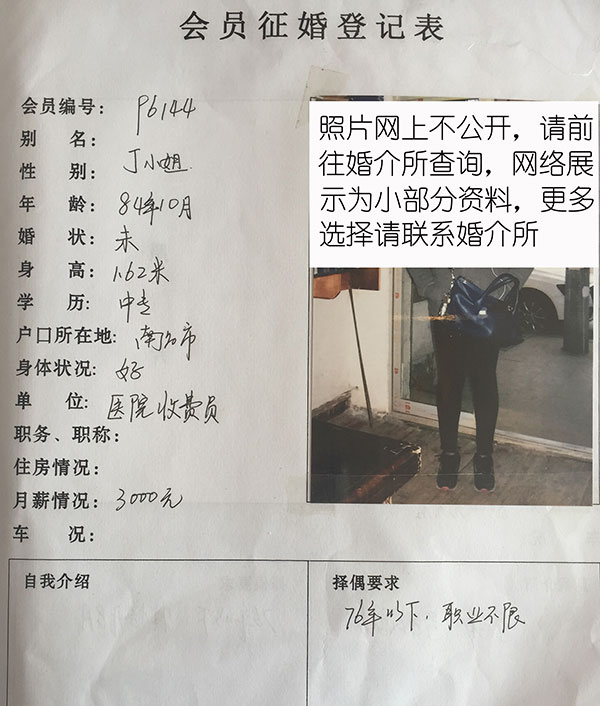 会员征婚登记表
会员编号: P6144
别 名:
丁小姐
性 别:
年 龄: 84年10月
婚 状: 未
身 高: 1.62米
学 历: 中专
户口所在地: 南昌市
身体状况: 好
单 位: 医院收费员
职务、职称:
住房情况:
月薪情况: 3000元
车 况:
照片网上不公开，请前
往婚介所查询，网络展
示为小部分资料，更多
选择请联系婚介所
自我介绍
择偶要求
76年以下，职业不限